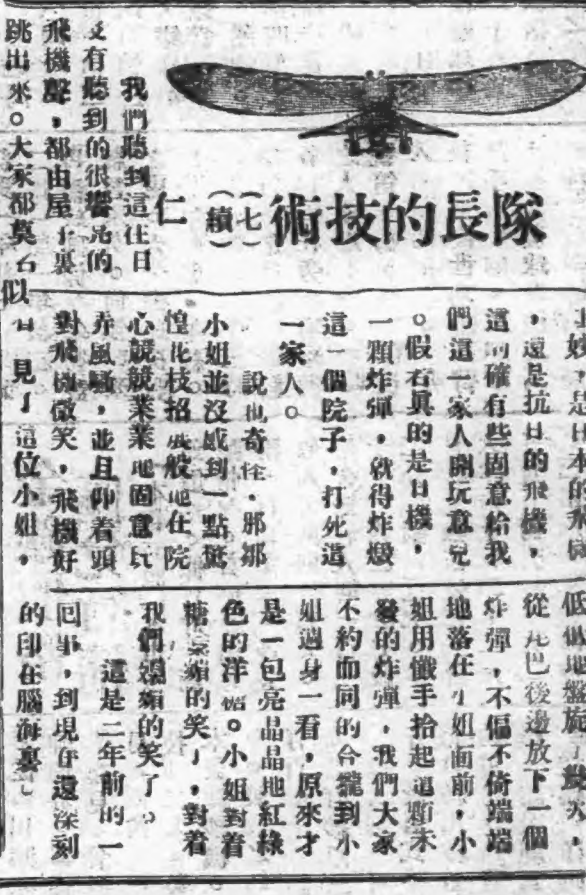 隊長的技術
(七)
(續)
仁
我們聽到這往日
有聽到的很響亮的
飛機聲,都由屋子裏
跳出來。大家都莫名
妙,是日本的飛機
,還是抗日的飛機,
這的確有些固意給我
們這一家人開玩意兒
。假若真的是日機,
一顆炸彈,就得炸燬
這一個院子,打死這
一家人。
說也奇怪,那鄒
小姐並沒感到一點驚
惶花枝招展般地在院
心兢兢業業地固意玩
弄風騷,並且仰着頭
對飛機微笑,飛機好
似 見了這位小姐,
低 地盤旋了幾次,
從尾巴後邊放下一個
炸彈,不偏不倚端端
地落在小姐面前,小
姐用懺手拾起這顆未
發的炸彈,我們大家
不約而同的合攏到小
姐過身一看,原來才
是一包亮晶晶地紅綠
色的洋糖。小姐對着
糖 媚的笑了,對着
我們嫣媚的笑了。
這是二年前的一
回事,到現在還深刻
的印在腦海裏。